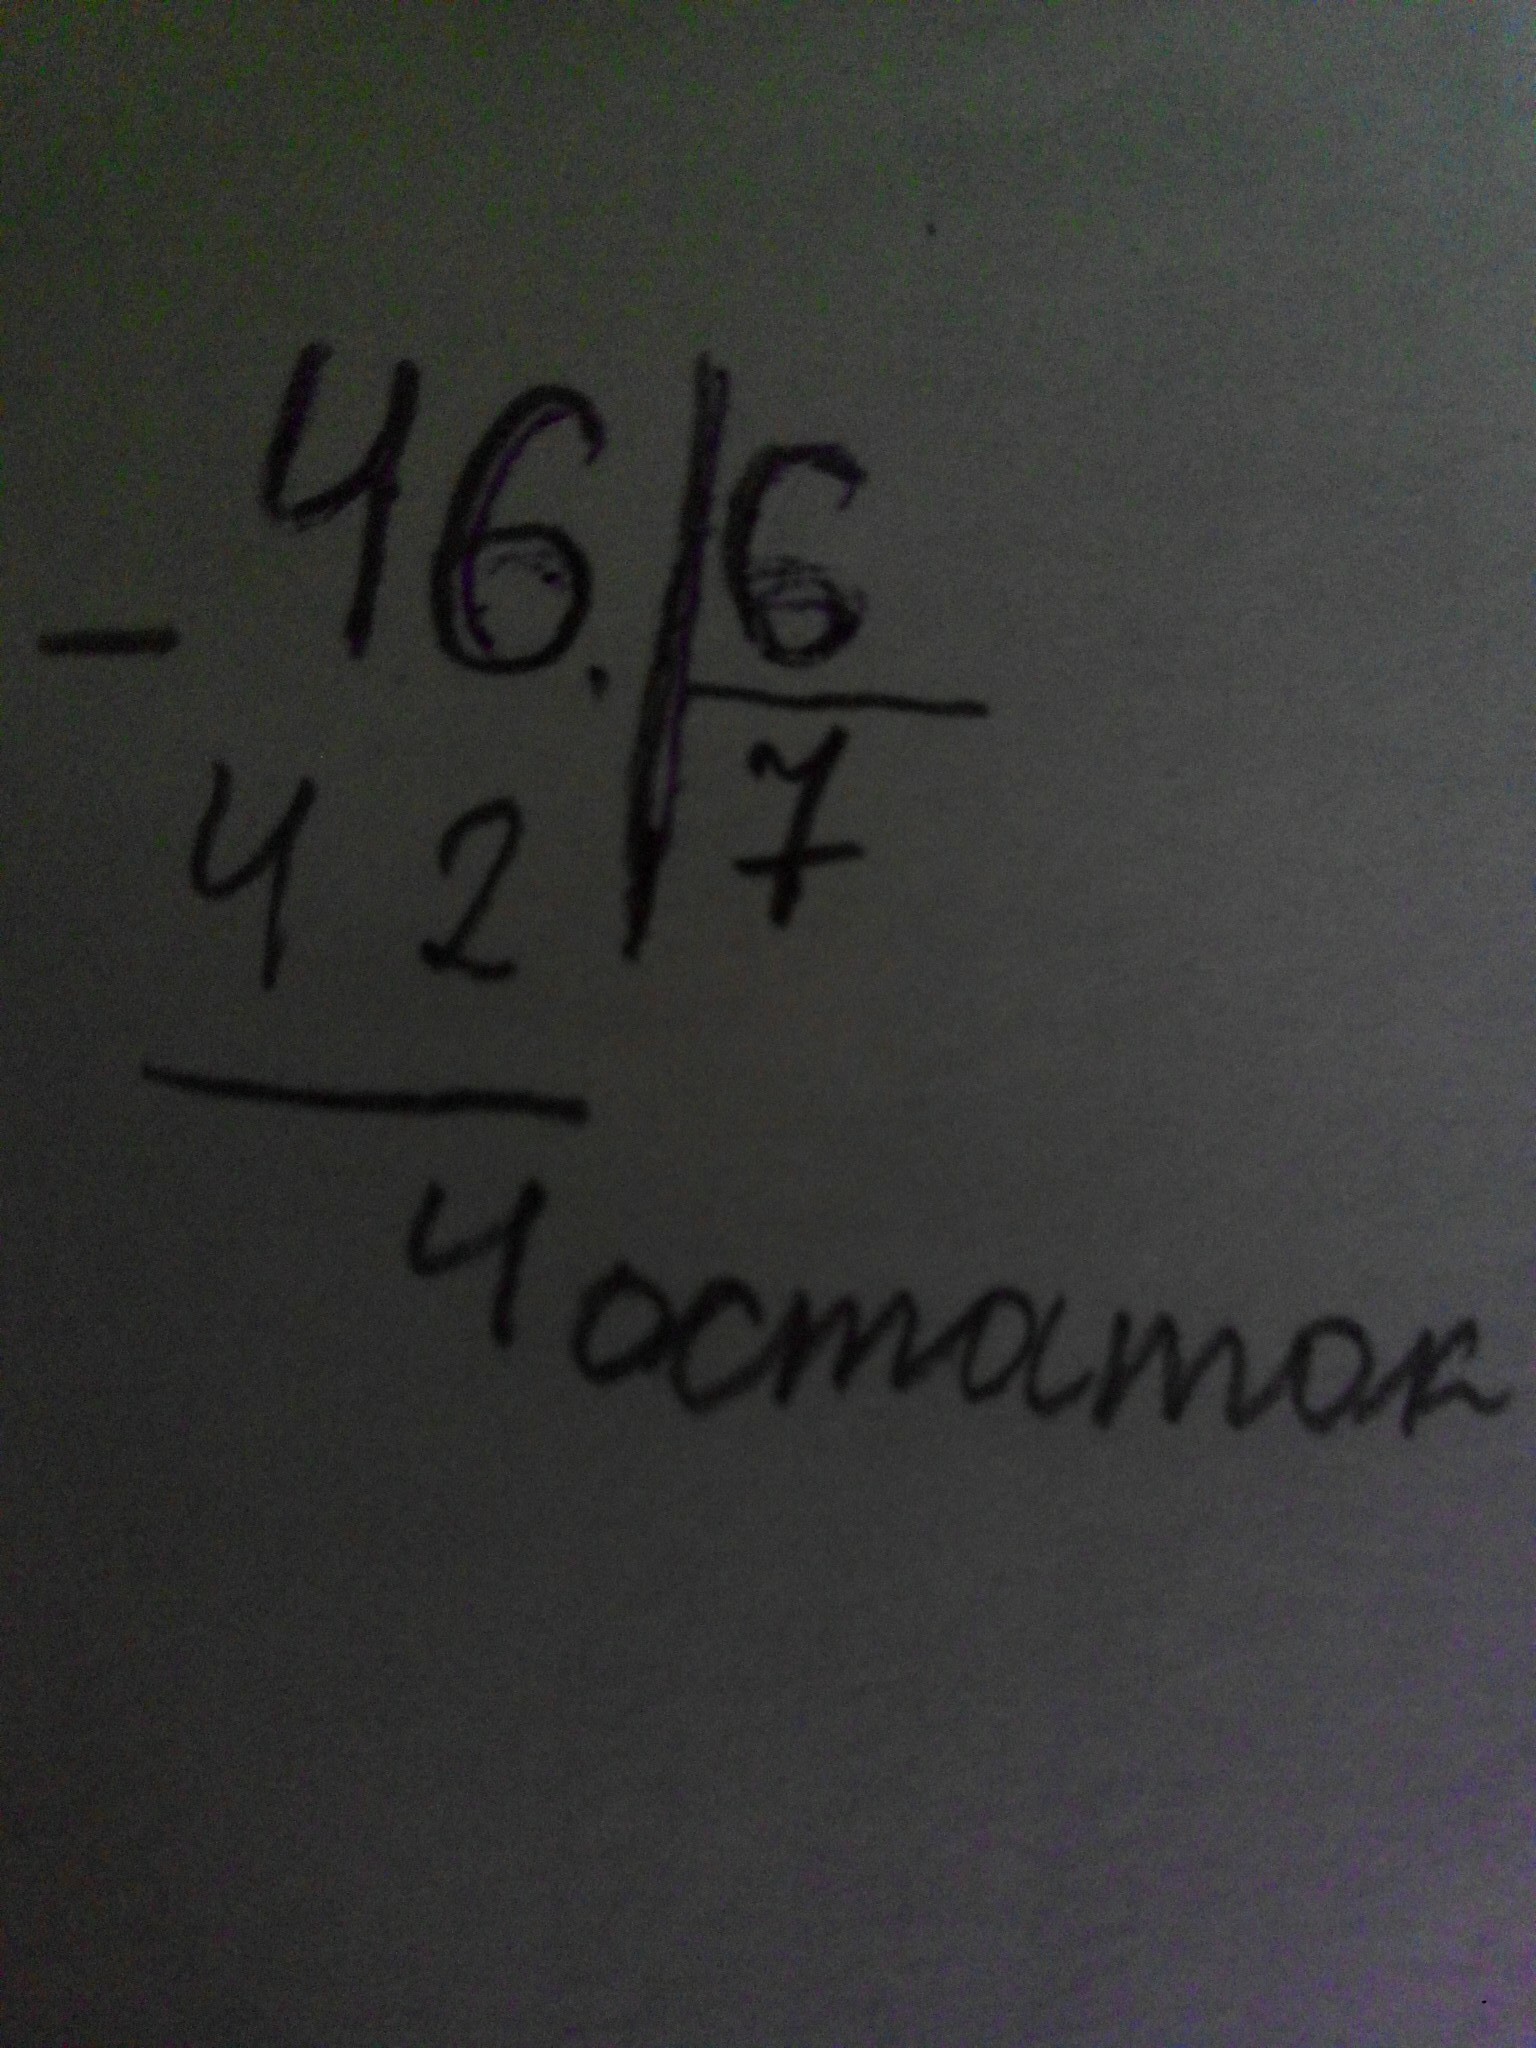 - 46. | 6
42 | 7
4 остаток